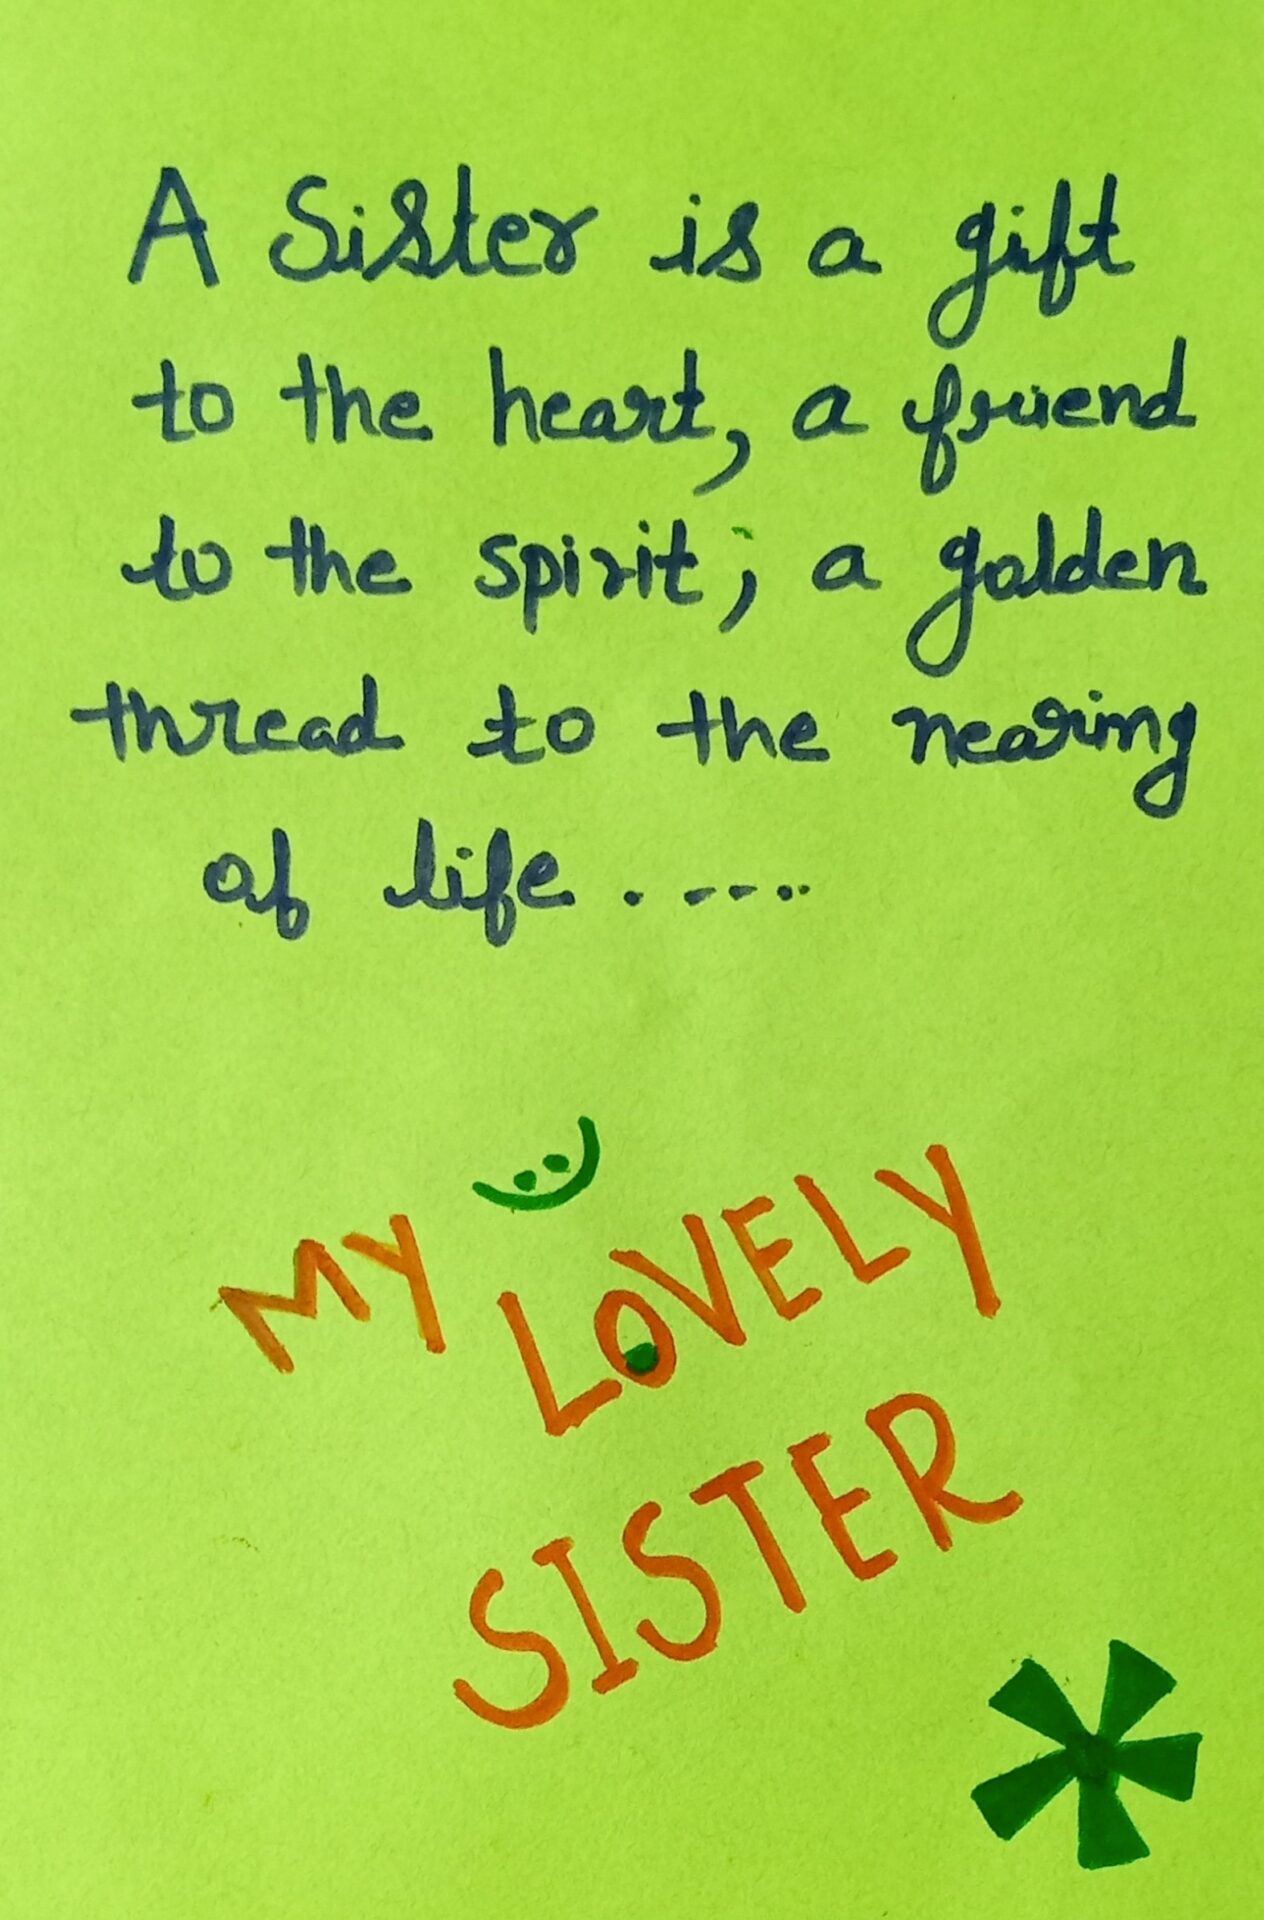 A Sister is a gift
to the heart, a friend
to the spirit, a golden
thread to the nearing
of life . .....
MY LOVELY
SISTER